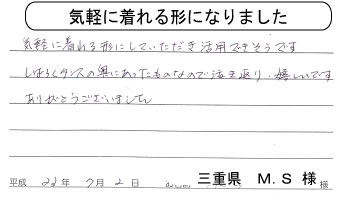 気軽に着れる形になりました
気軽に着れる形にしていただき活用できそうです
しばらくタンスの奥にあったものなので活き返り、嬉しいです
ありがとうございました
平成 22年 7月 2日 三重県 M.S 様